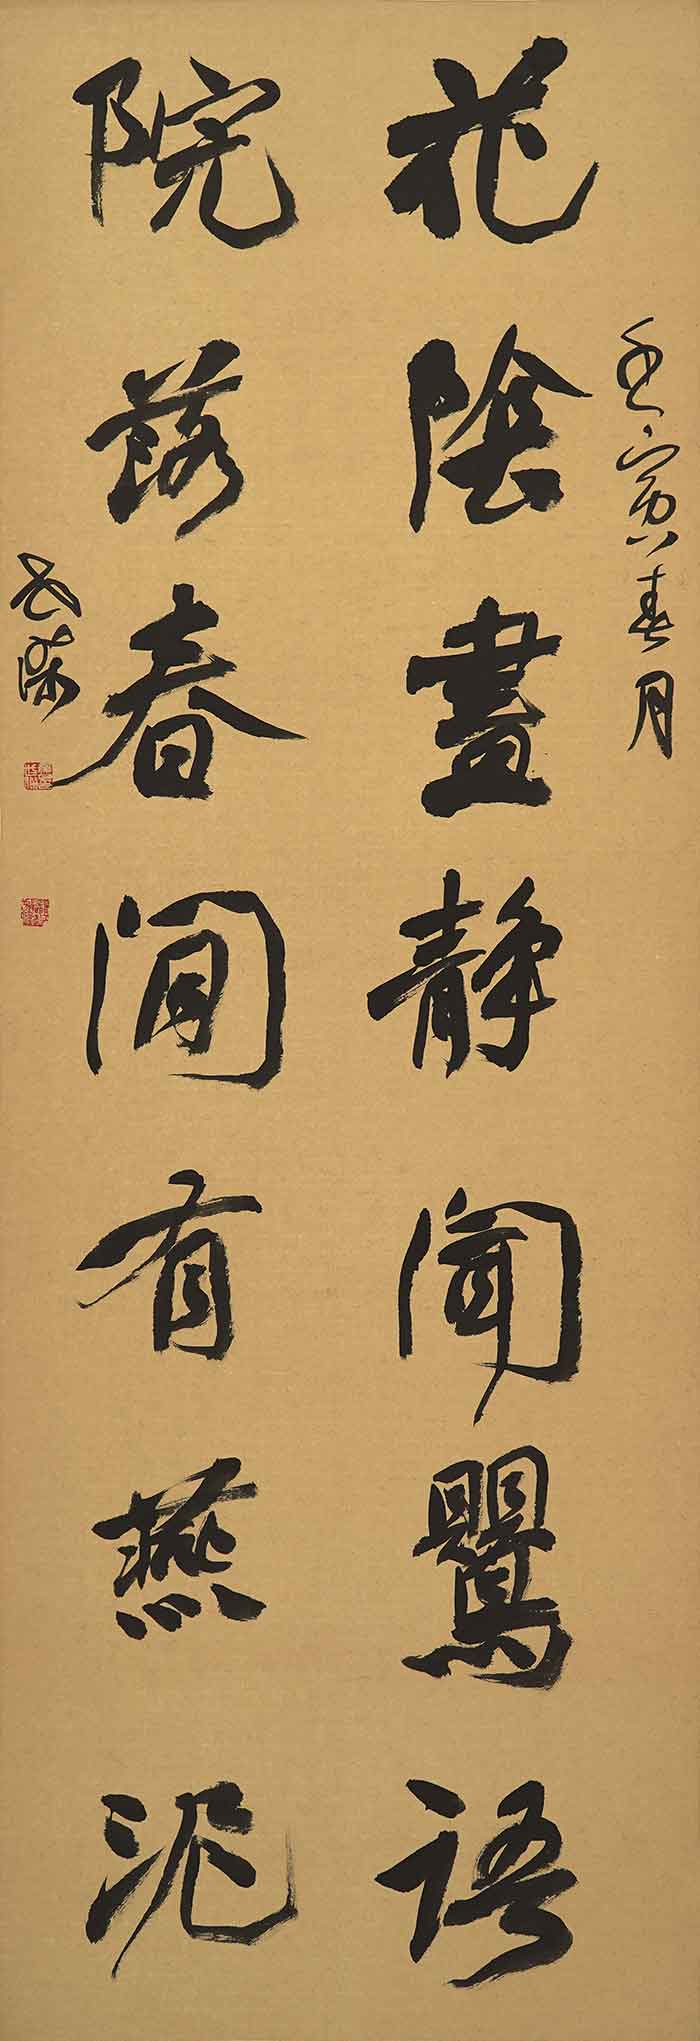 壬寅春月
花陰晝靜聞鸎語
院落春閒有燕泥